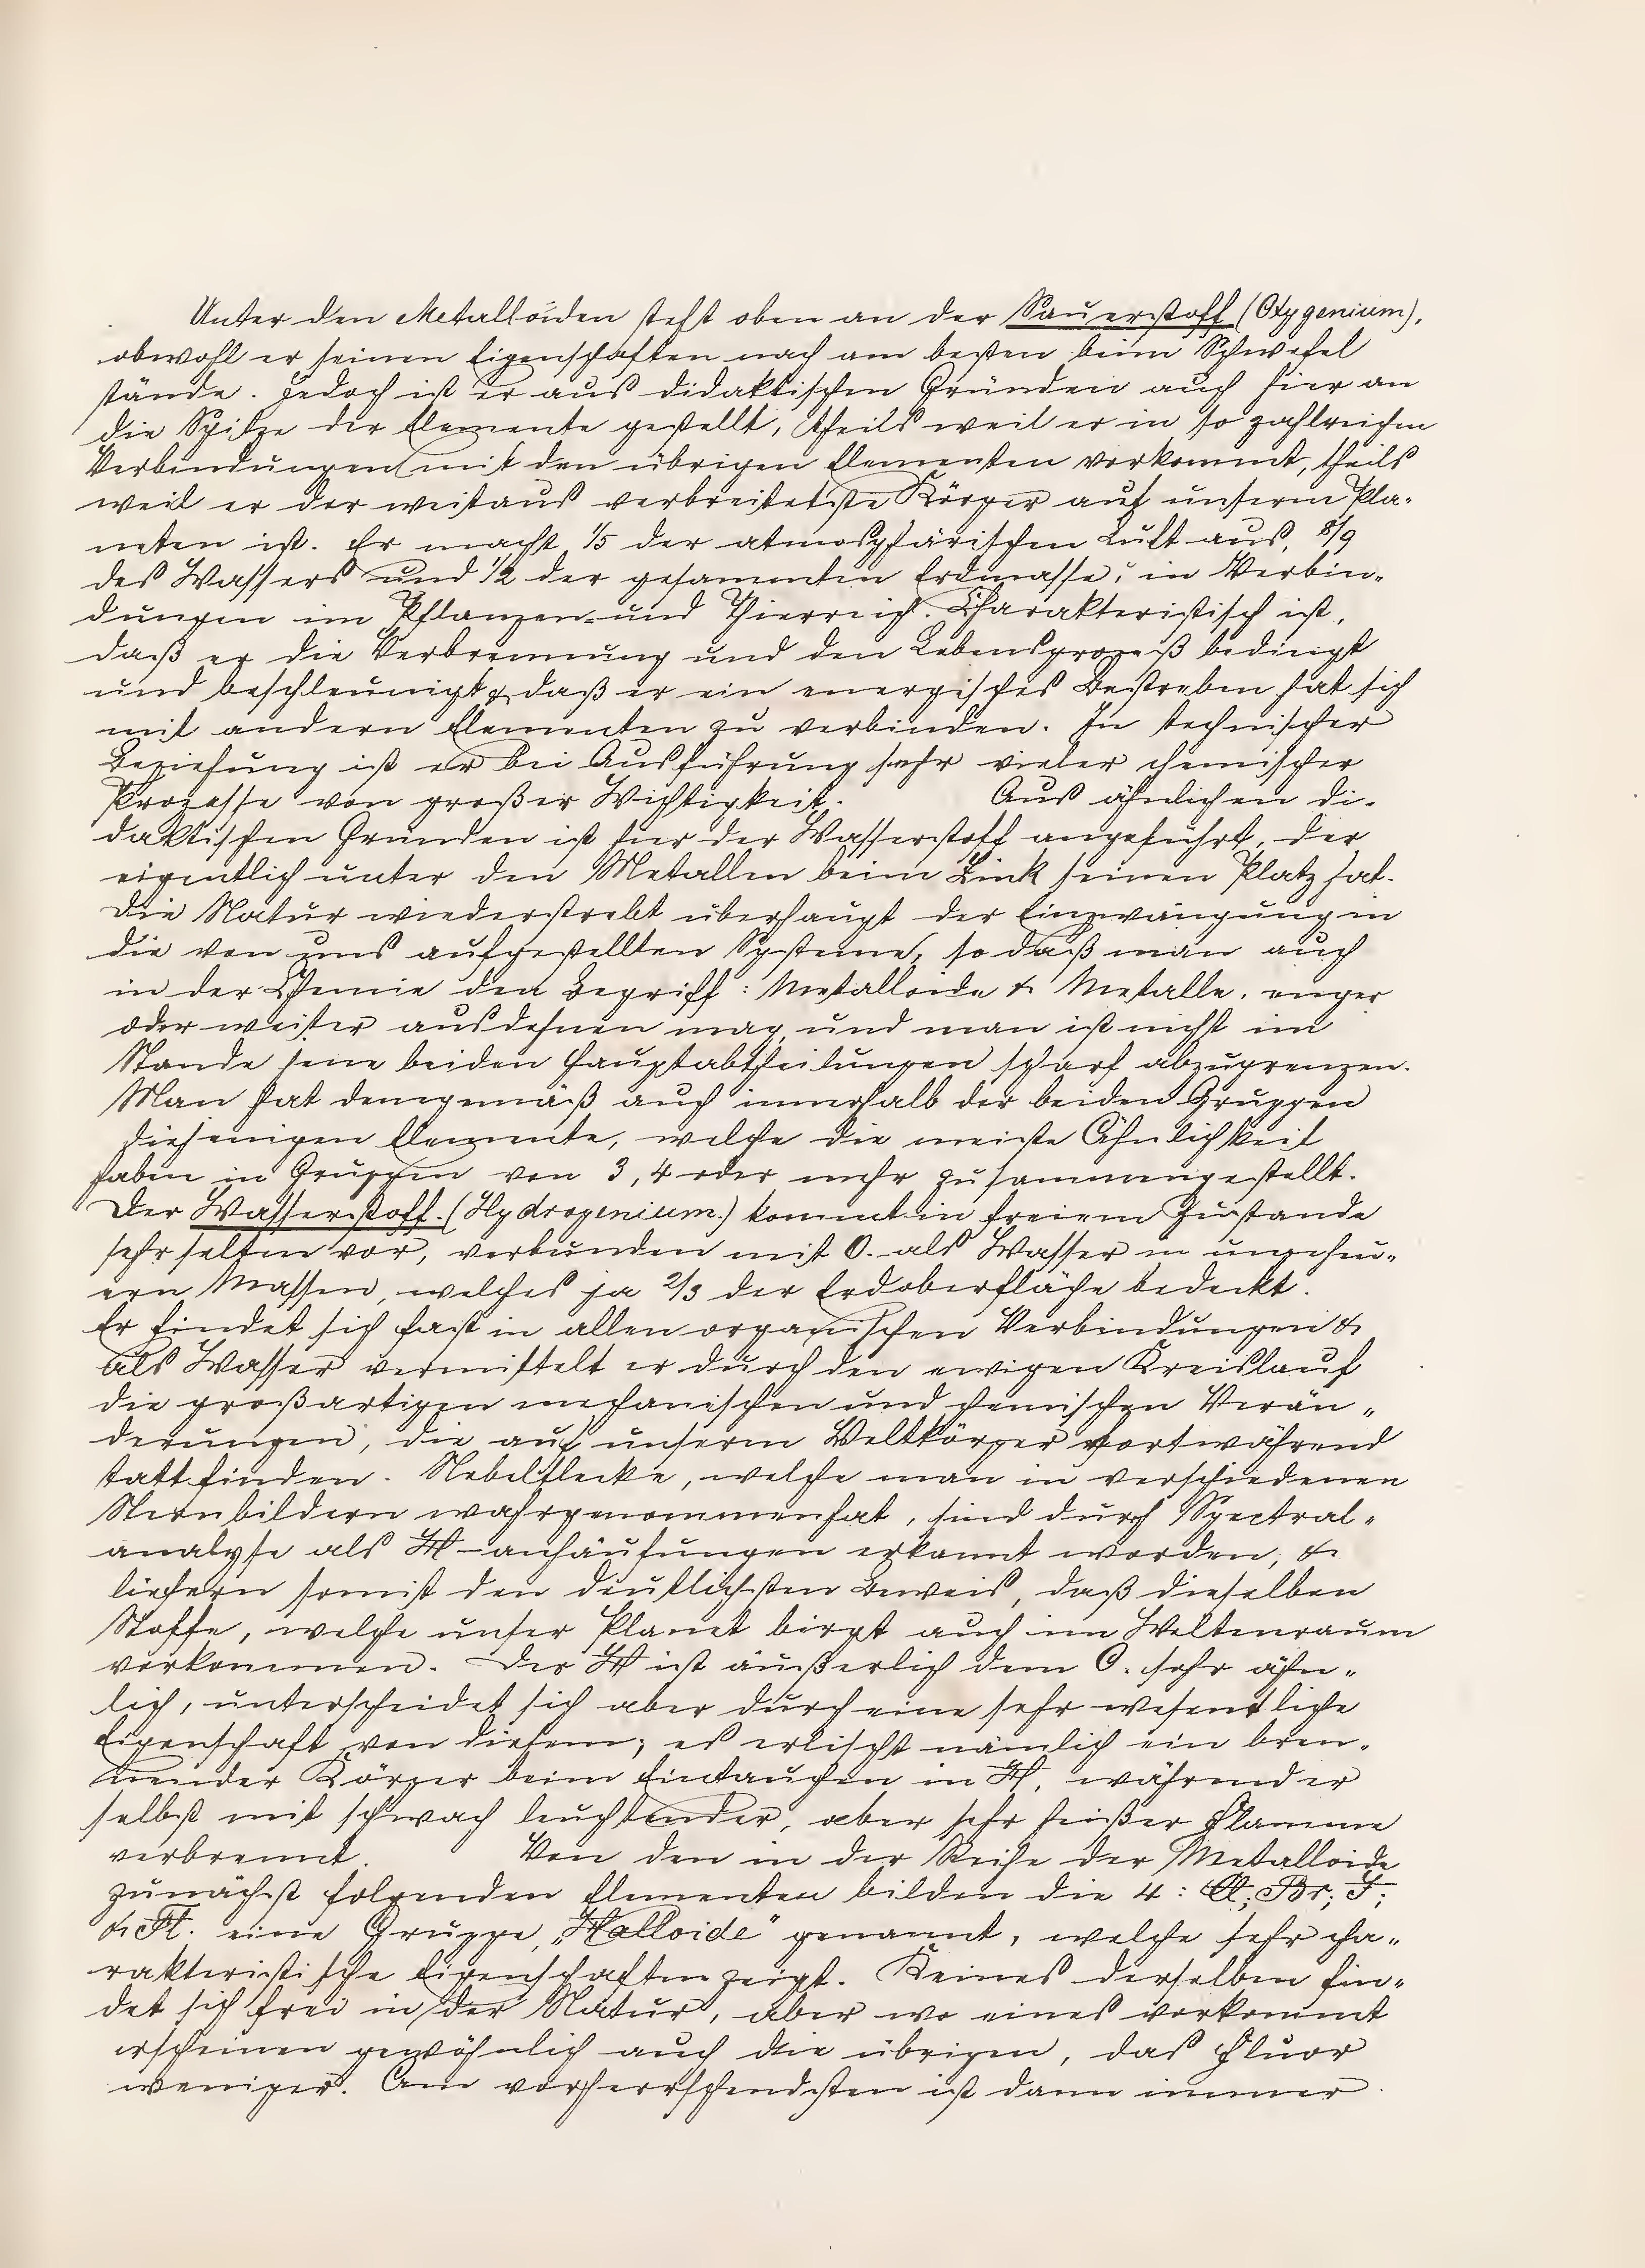 Unter den Metalloïden steht oben an der Sauerstoff (Oxygenium),
obwohl er seinen Eigenschaften nach am besten beim Schwefel
stände. Jedoch ist er aus didaktischen Gründen auch hier an
die Spitze der Elemente gestellt, theils weil er in so zahlreichen
Verbindungen mit den übrigen Elementen vorkommt, theils
weil er der weitaus verbreitetste Körper auf unserm Pla-
neten ist. Er macht 1/5 der atmosphärischen Luft aus, 8/9
des Wassers und 1/2 der gesammten Erdmasse; in Verbin-
dungen im Pflanzen- und Thierreich. Charakteristisch ist,
daß er die Verbrennung und den Lebensprozeß bedingt
und beschleunigt & daß er ein energisches Bestreben hat sich
mit andern Elementen zu verbinden. In technischer
Beziehung ist er bei Ausführung sehr vieler chemischer
Prozesse von großer Wichtigkeit. Aus ähnlichen di-
daktischen Gründen ist hier der Wasserstoff angeführt, der
eigentlich unter den Metallen beim Zink seinen Platz hat.
Die Natur wiederstrebt überhaupt der Einzwängung in
die von uns aufgestellten Systeme, so daß man auch
in der Chemie den Begriff: Metalloide & Metalle, enger
oder weiter ausdehnen mag, und man ist nicht im
Stande jene beiden Hauptabtheilungen scharf abzugrenzen.
Man hat demgemäß auch innerhalb der beiden Gruppen
diejenigen Elemente, welche die meiste Ähnlichkeit
haben in Gruppen von 3, 4 oder mehr zusammengestellt.
Der Wasserstoff. (Hydrogenium.) kommt in freiem Zustande
sehr selten vor, verbunden mit O. als Wasser in ungeheu-
ern Massen, welches ja 2/3 der Erdoberfläche bedeckt.
Er findet sich fast in allen organischen Verbindungen &
als Wasser vermittelt er durch den ewigen Kreislauf
die großartigen mechanischen und chemischen Verän-
derungen, die auf unserm Weltkörper fortwährend
tattfinden. Nebelflecke, welche man in verschiedenen
Sternbildern wahrgenommen hat, sind durch Spectral-
analyse als H-anhäufungen erkannt worden, &
liefern somit den deutlichsten Beweis, daß dieselben
Stoffe, welche unser Planet birgt auch im Weltenraum
vorkommen. Der H ist äußerlich dem O. sehr ähn-
lich, unterscheidet sich aber durch eine sehr wesentliche
Eigenschaft von diesem; es erlischt nämlich ein bren-
nender Körper beim Eintauchen in H, während er
selbst mit schwach leuchtender, aber sehr heißer Flamme
verbrennt. Von den in der Reihe der Metalloide
zunächst folgenden Elementen bilden die 4: Cl; Br; J;
& Fl. eine Gruppe, „Halloide" genannt, welche sehr cha-
rakteristische Eigenschaften zeigt. Keines derselben fin-
det sich frei in der Natur, aber wo eines vorkommt
erscheinen gewöhnlich auch die übrigen, das Fluor
weniger. Am vorherrschendsten ist dann immer